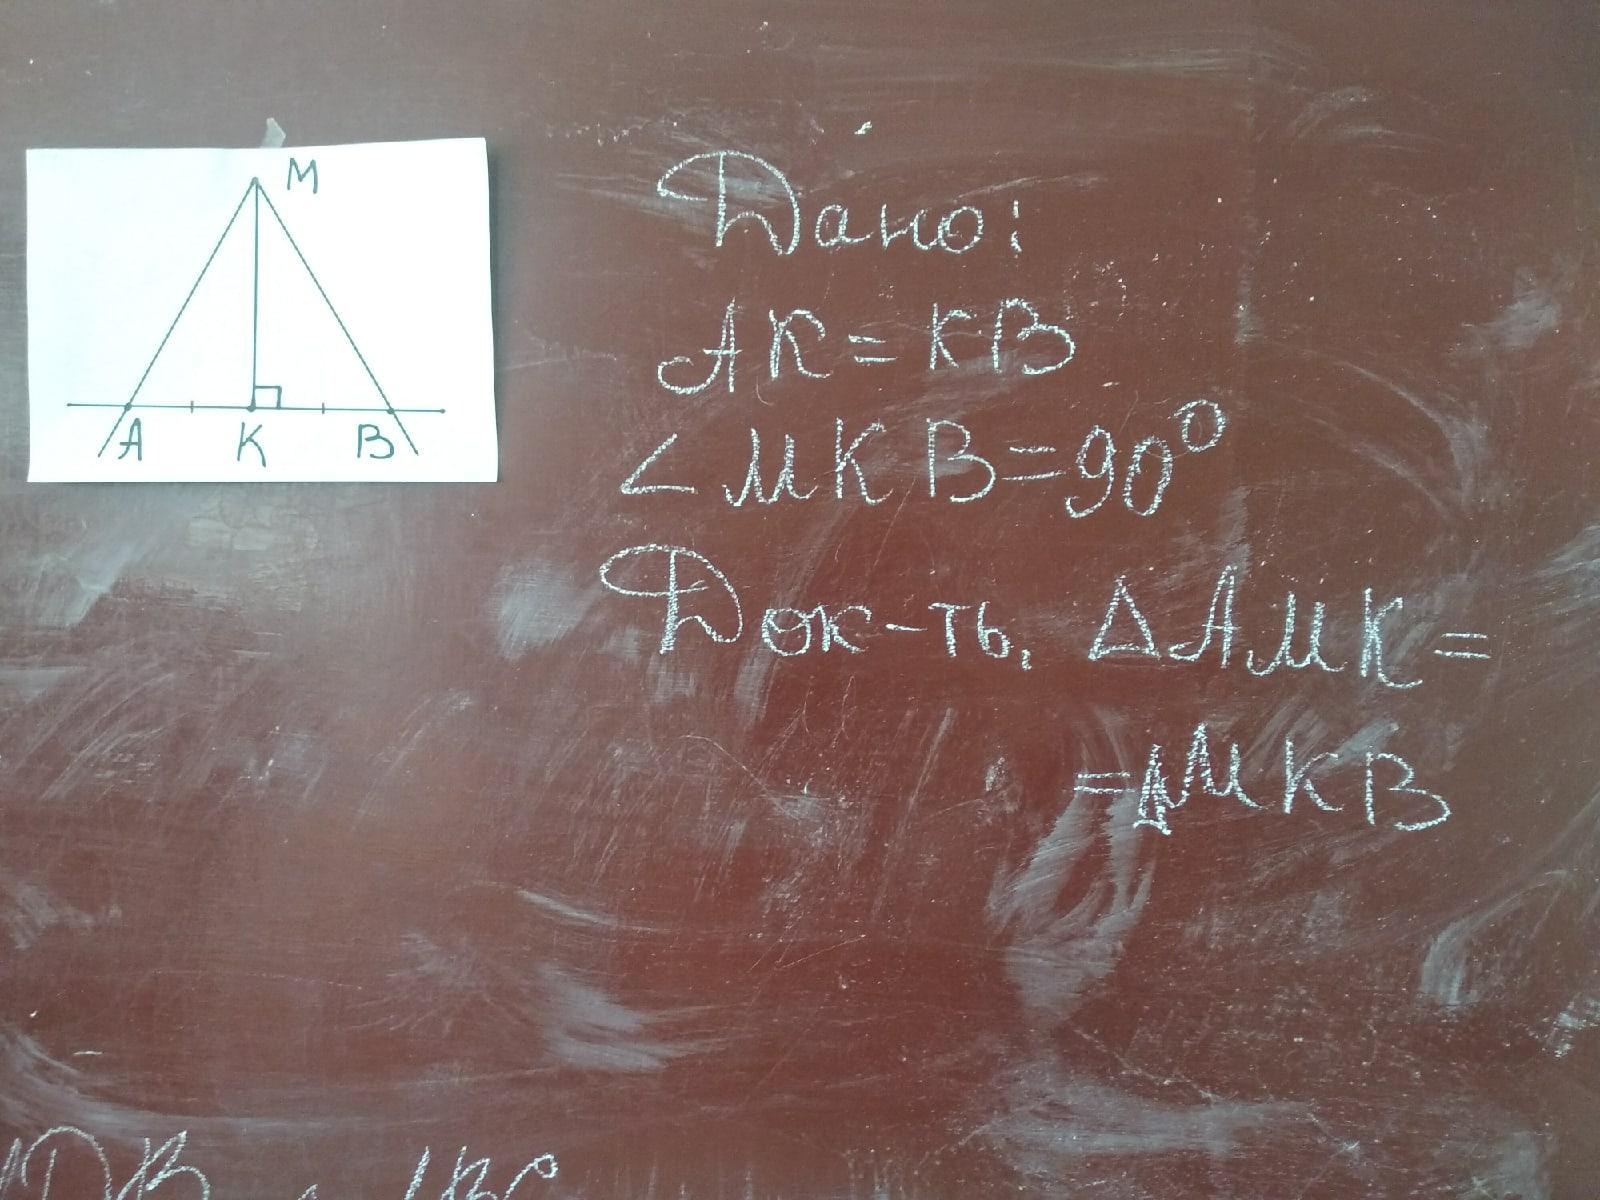 M
A K B
Дано:
AK = KB
∠MKB = 90°
Док-ть, ΔAMK =
= ΔMKB